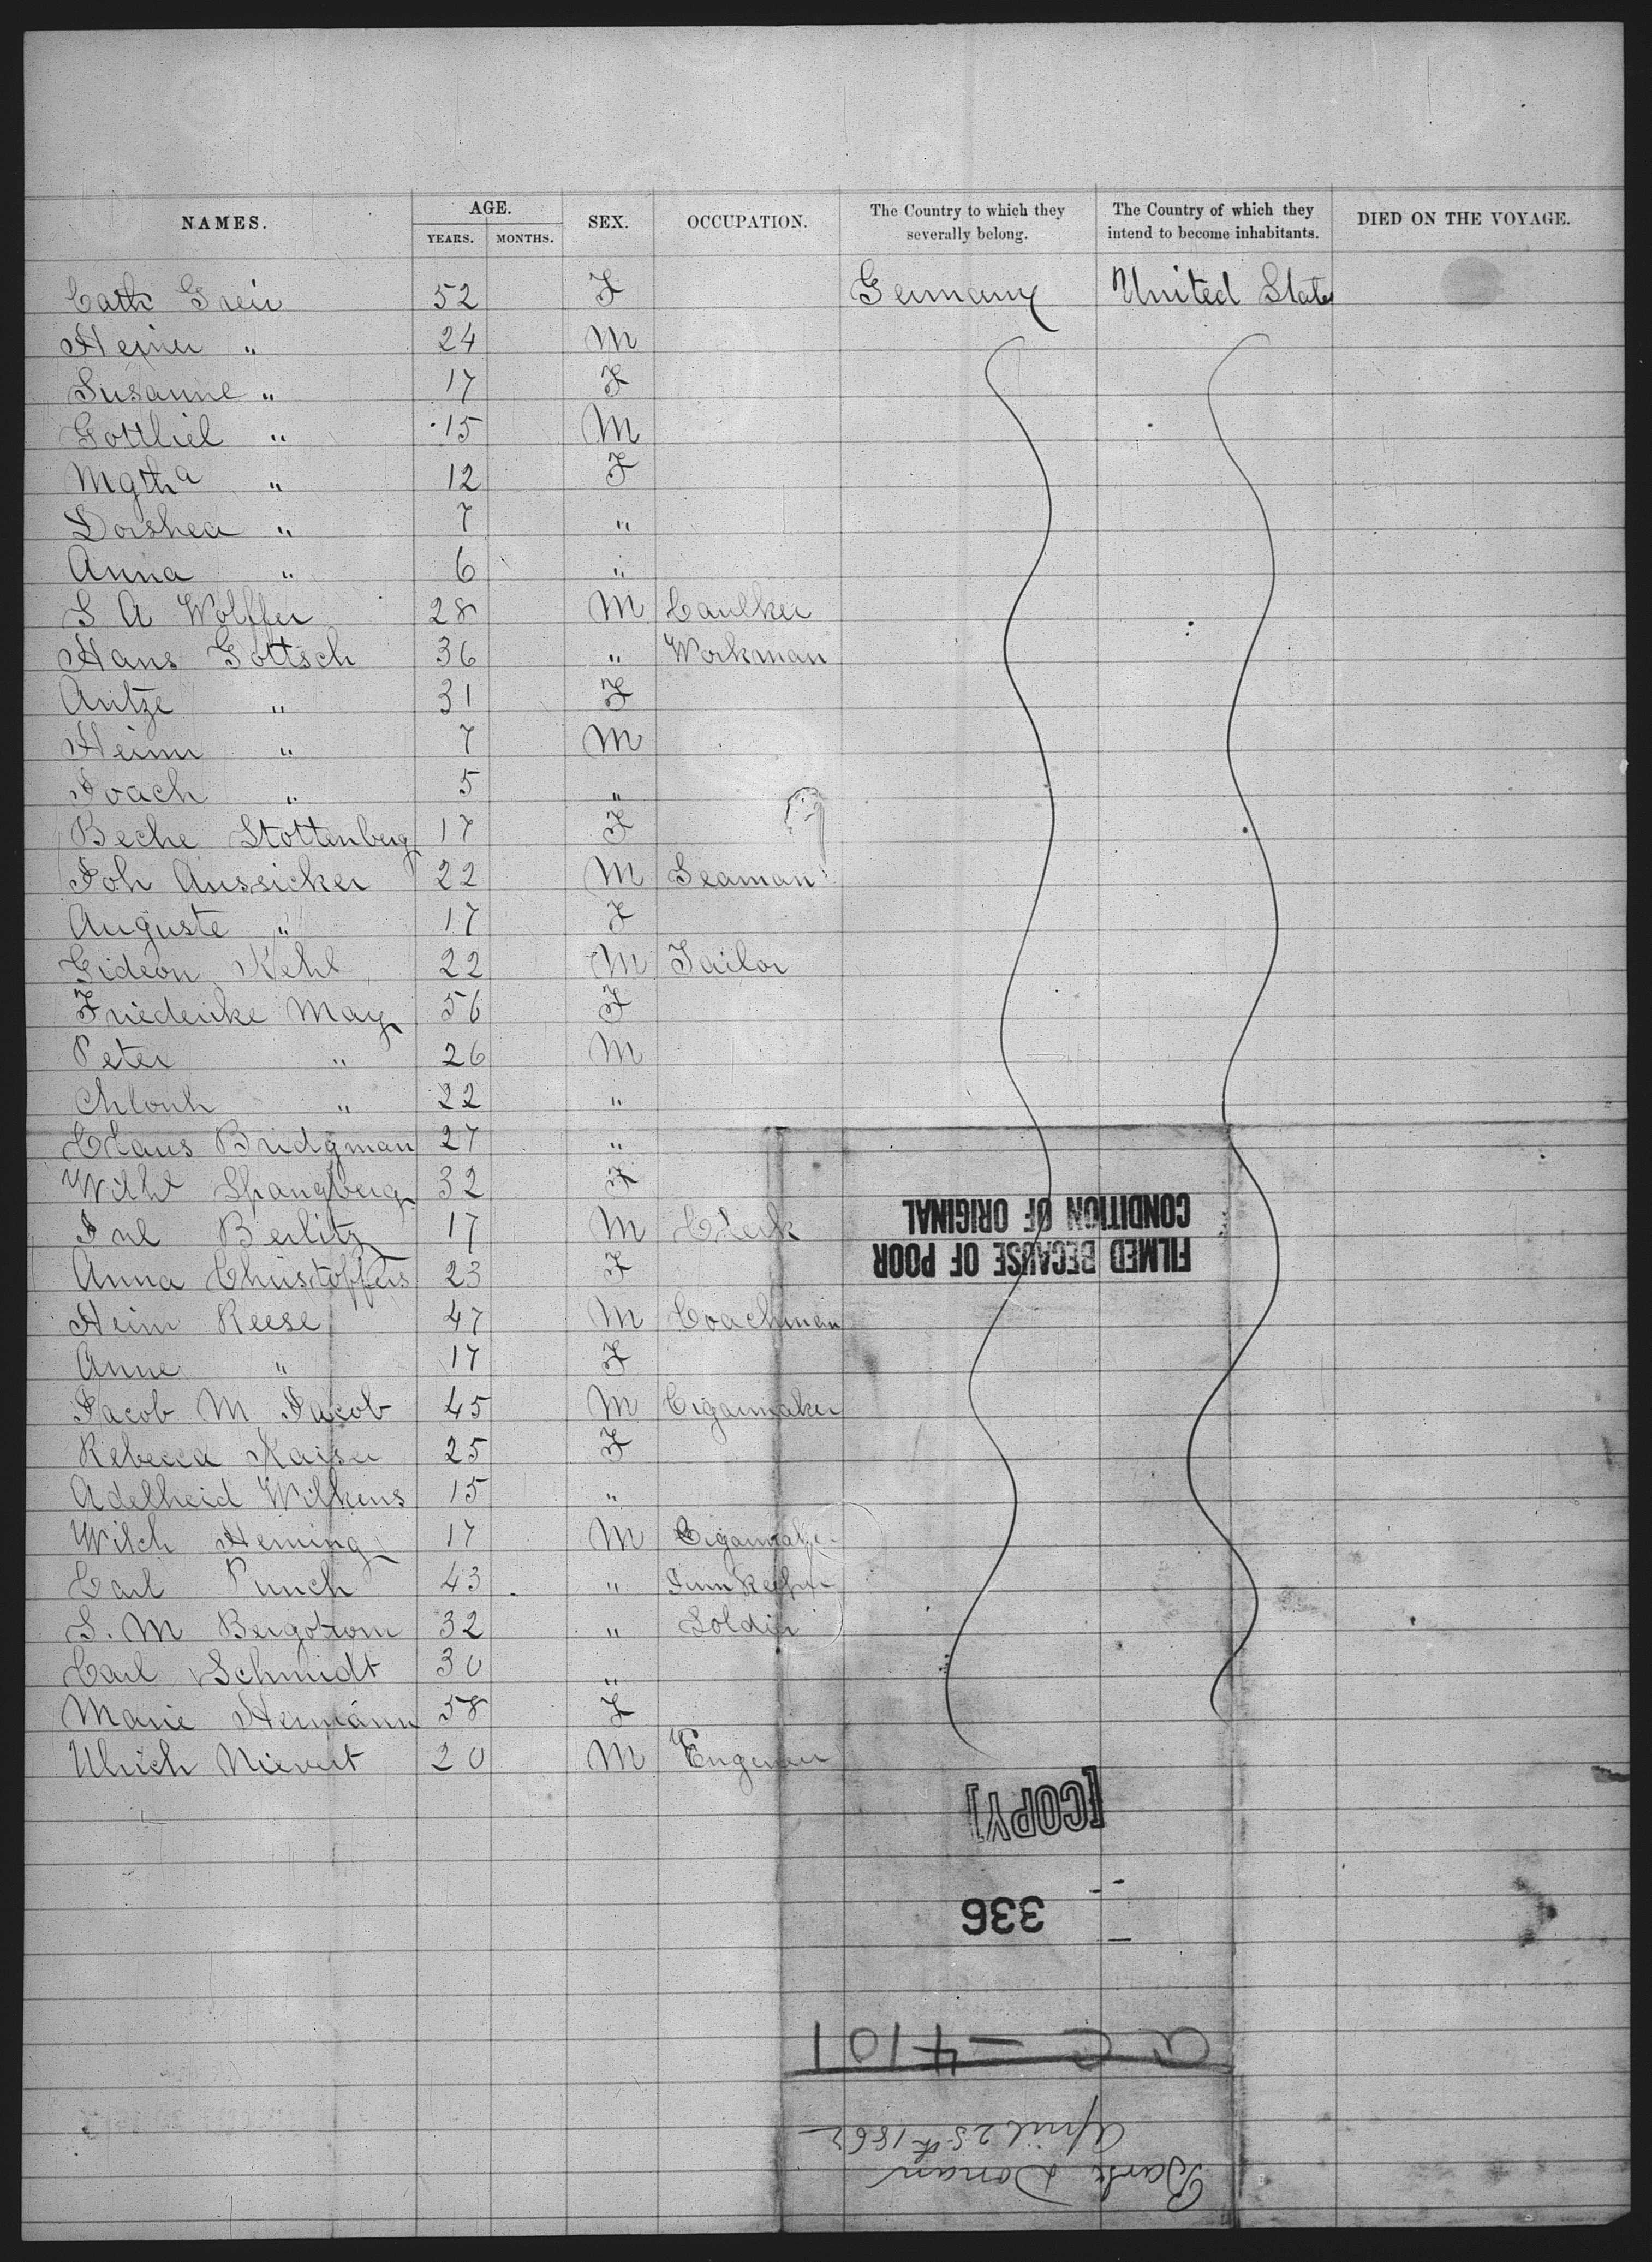 NAMES. AGE. SEX. OCCUPATION. The Country to which they severally belong. The Country of which they intend to become inhabitants. DIED ON THE VOYAGE.
YEARS. MONTHS.
Cath Grein 52 F Germany United States
Heiner " 24 M
Susanne " 17 F
Gottlieb " 15 M
Mgtha " 12 F
Dorshea " 7 "
Anna " 6 "
S A Wolffer 28 M Caulker
Hans Gottsch 36 " Workman
Antze " 31 F
Heinr " 7 M
Joach " 5 "
Beche Stottenberg 17 F
Joh Aussicker 22 M Seaman
Auguste " 17 F
Gideon Kehl 22 M Tailor
Friederike May 56 F
Peter " 26 M
" 22 "
Claus Bridgman 27 "
Wilhl Spangberg 32 F
Jul Berlitz 17 M Clerk
Anna Christoffers 23 F
Heinr Reese 47 M Coachman
Anne " 17 F
Jacob M Jacob 45 M Cigarmaker
Rebecca Kaiser 25 F
Adelheid Wilkens 15 "
Wilh Heming 17 M Cigarmaker
Carl Punch 43 " Innkeeper
S. M Bergstrom 32 " Soldier
Carl Schmidt 30 "
Marie Hermann 58 F
Ulrich Nievert 20 M Engineer
FILMED BECAUSE OF POOR
CONDITION OF ORIGINAL
[COPY]
336
a c - 4101
Bark Donau
April 25th 1862